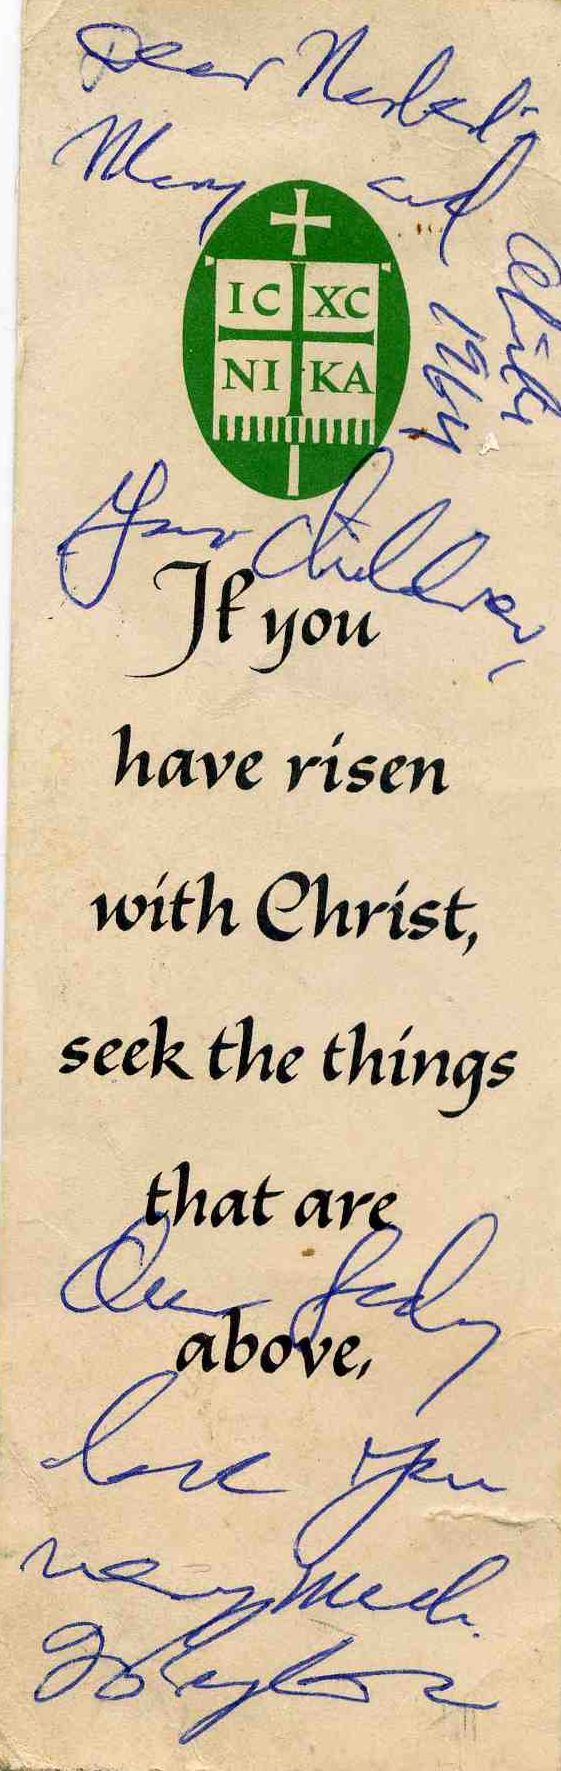 Dear
Mary and
1964
IC XC
NI KA
Your Children,
If you
have risen
with Christ,
seek the things
that are
Our Lady
above,
love you
very much.